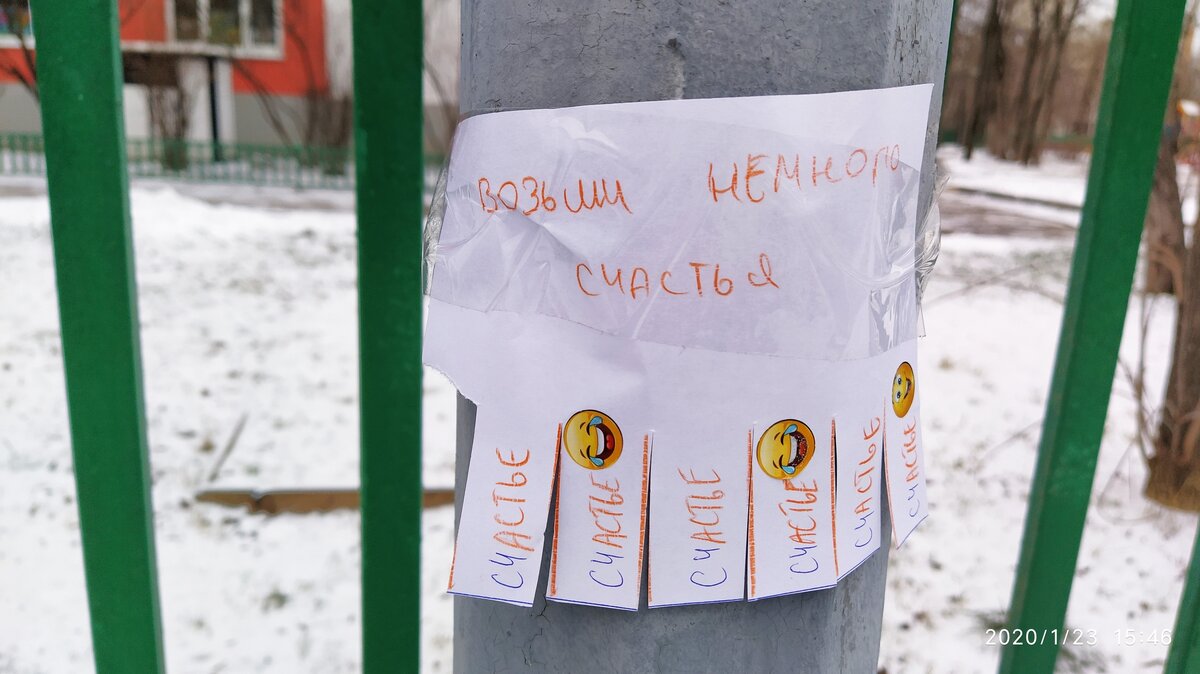 ВОЗЬМИ НЕМНОГО
СЧАСТЬЯ
СЧАСТЬЕ
СЧАСТЬЕ
СЧАСТЬЕ
СЧАСТЬЕ
СЧАСТЬЕ
СЧАСТЬЕ
2020/1/23 15:46